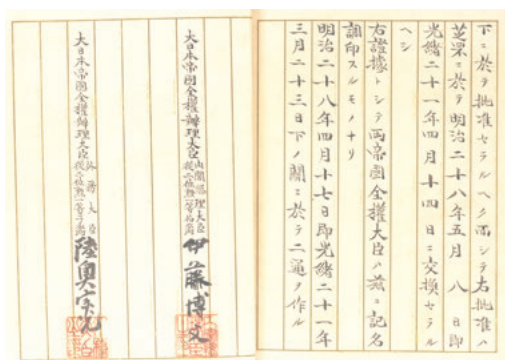 下ニ於テ批准セラルヘク而シテ右批准ハ
芝罘ニ於テ明治二十八年五月八日即
光緒二十一年四月十四日ニ交換セラル
ヘシ
右證據トシテ兩帝國全權大臣ハ茲ニ記名
調印スルモノナリ
明治二十八年四月十七日即光緒二十一年
三月二十三日下ノ關ニ於テ二通ヲ作ル
大日本帝國全權辦理大臣
內閣總理大臣
從二位勳一等伯爵
伊藤博文
大日本帝國全權辦理大臣
外務大臣
從二位勳一等子爵
陸奥宗光